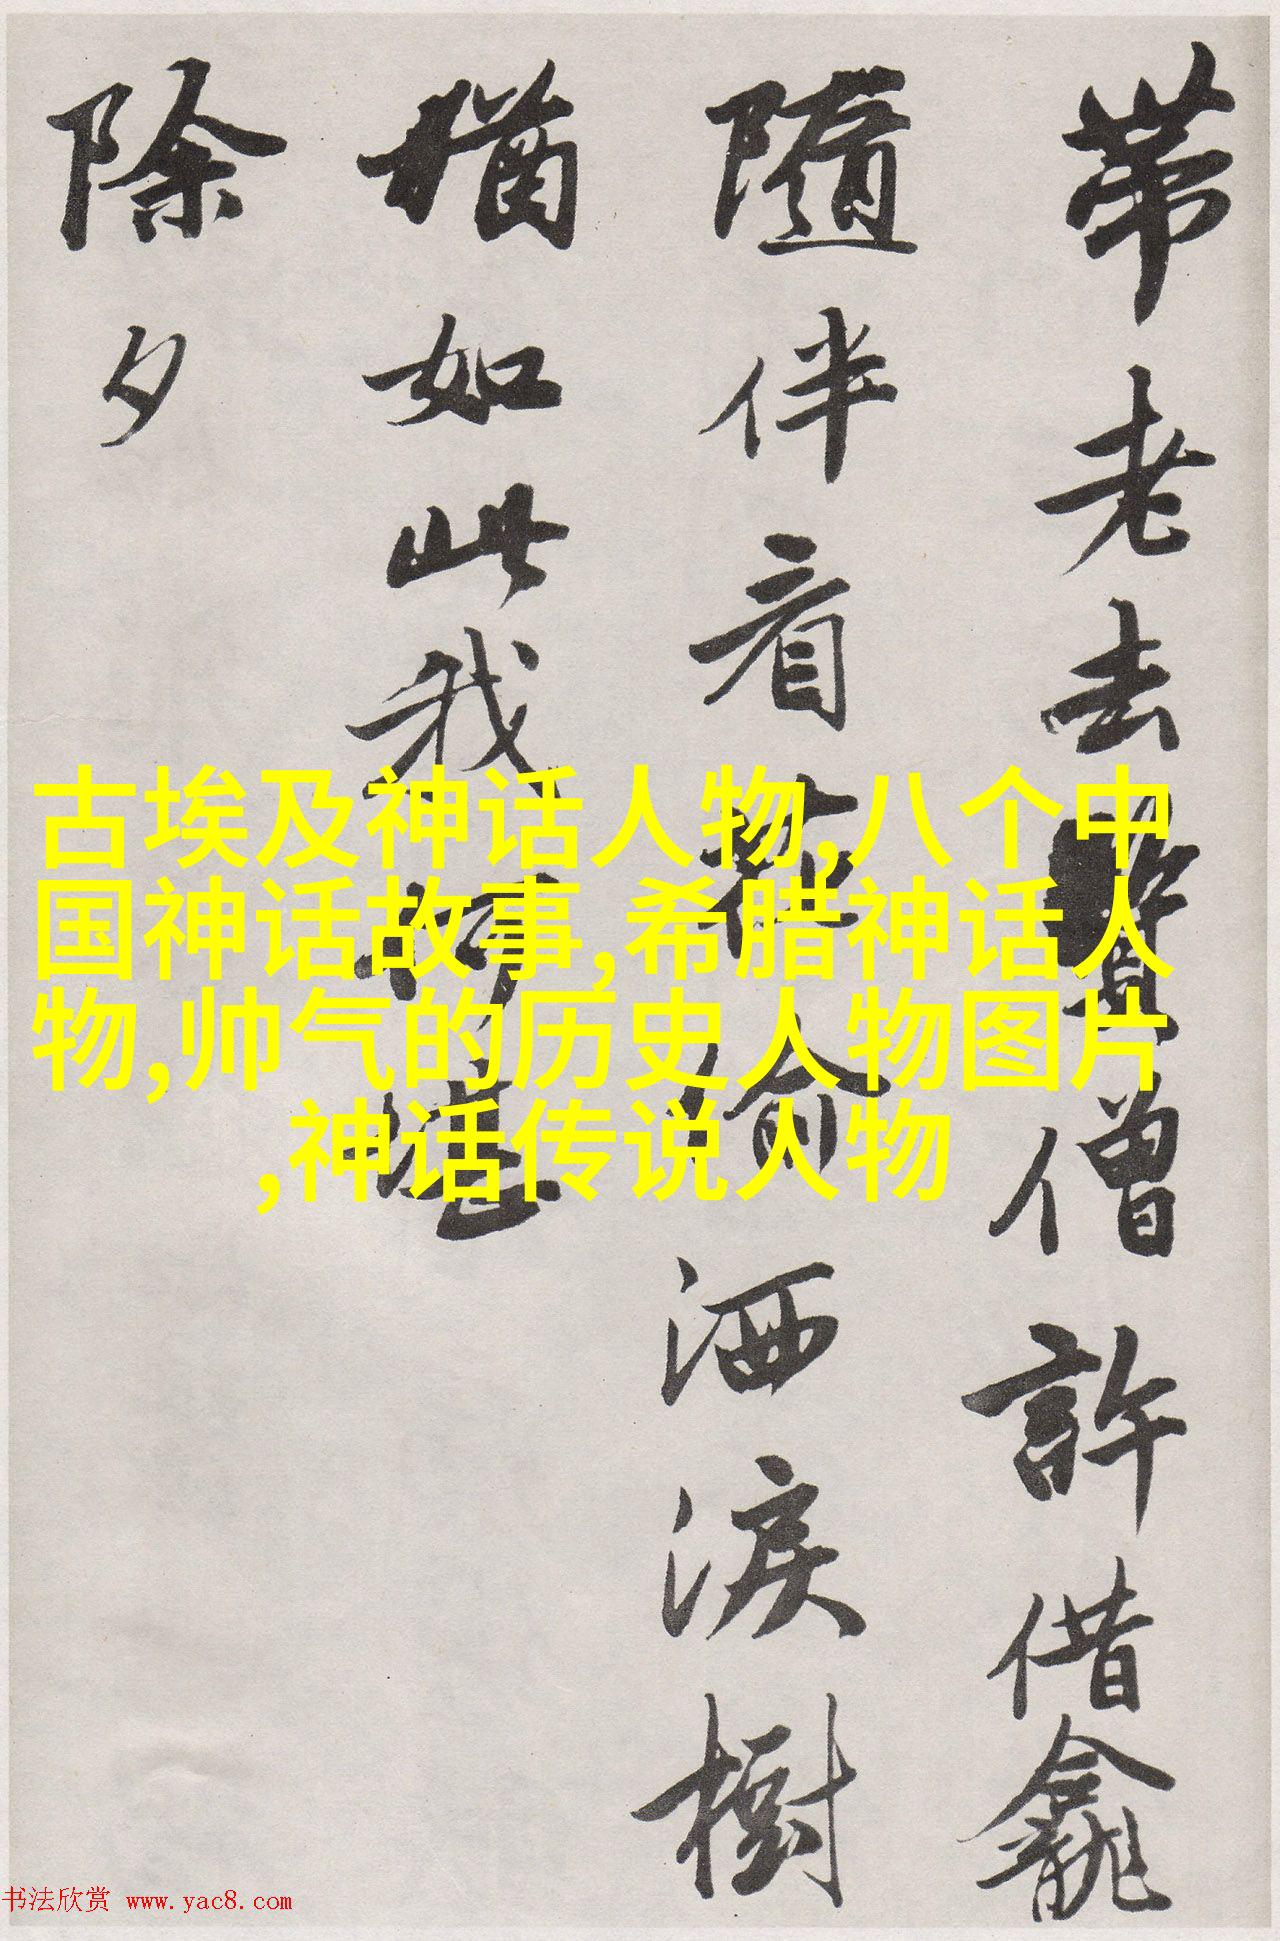 帶老去暫僧許借龕
隨伴看花偷洒淚樹
猶如此我何堪
除夕
古埃及神话人物,八个中
国神话故事,希腊神话人
物,帅气的历史人物图片
,神话传说人物
书法欣赏 www.yac8.com